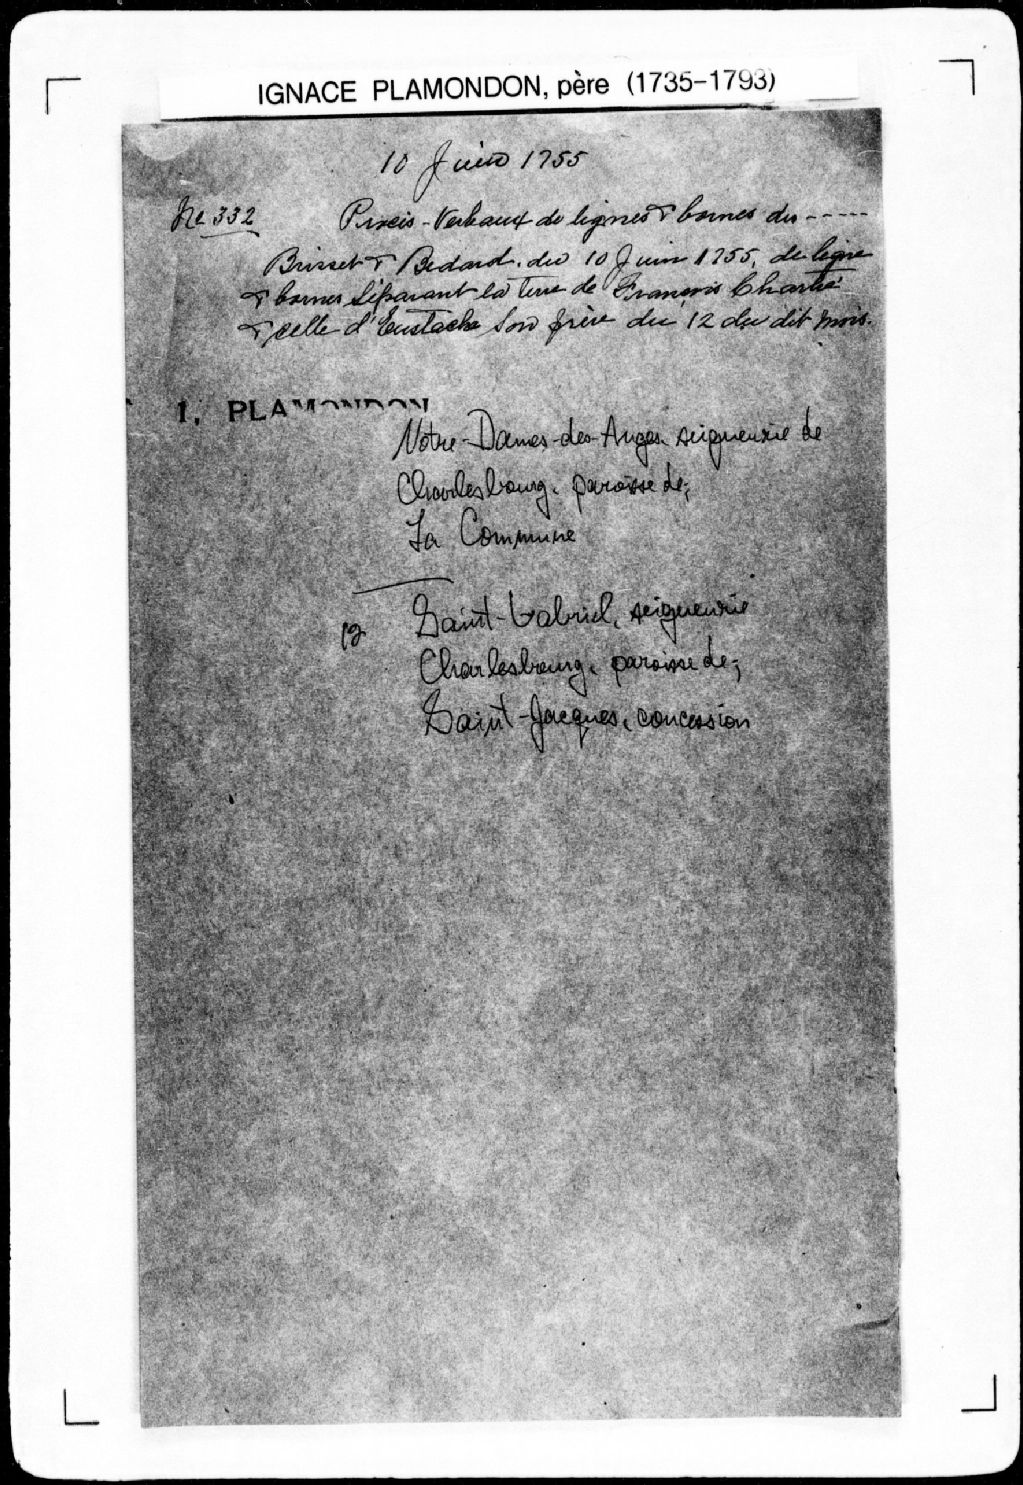 IGNACE PLAMONDON, père (1735-1793)
10 Juin 1755
No 332 Procès-Verbaux de lignes & bornes des -----
Brisset & Bedard. du 10 Juin 1755, de ligne
& bornes séparant la terre de François Chartré
& celle d'Eustache son frère du 12 du dit mois.
I. PLAMONDON
Notre-Dames-des-Anges, seigneurie de
Charlesbourg, paroisse de;
La Commune
12 Saint-Gabriel, seigneurie
Charlesbourg, paroisse de;
Saint-Jacques, concession